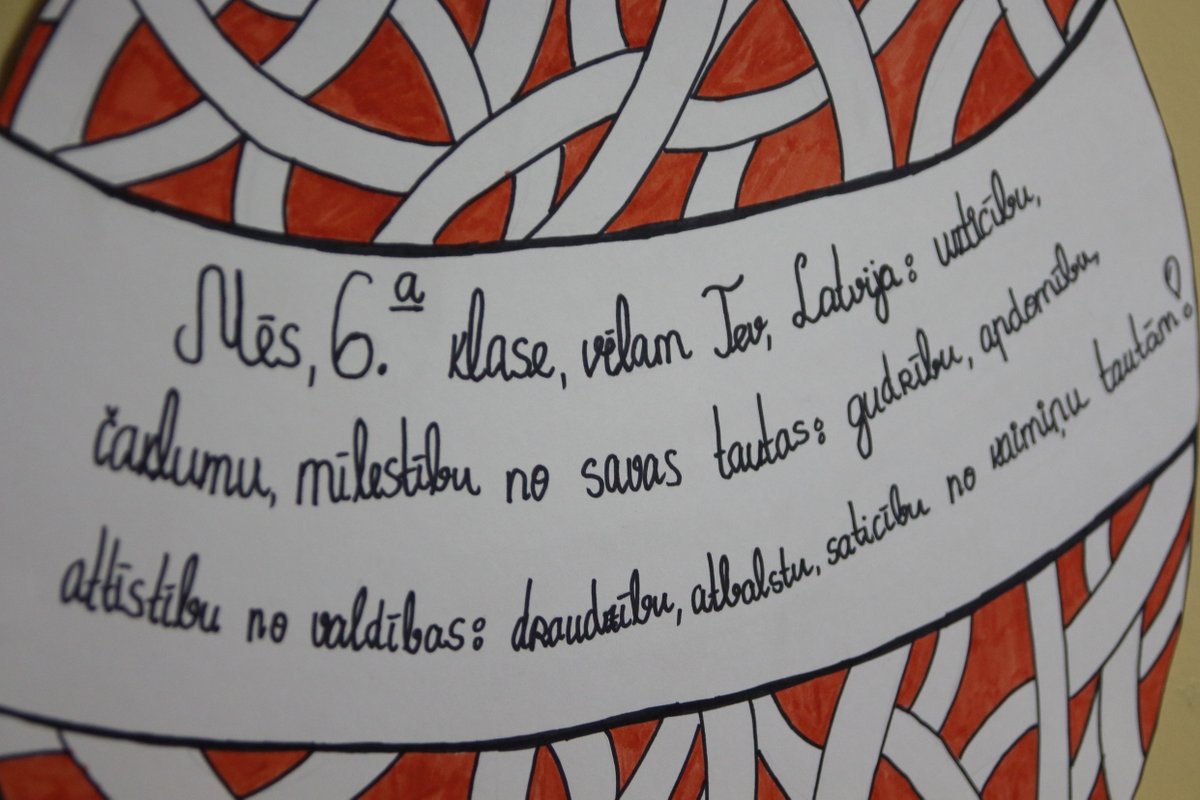 Mēs, 6.a klase, vēlam Tev, Latvija: uzticību,
čaklumu, mīlestību no savas tautas: gudrību, apdomību,
attīstību no valdības: draudzību, atbalstu, saticību no kaimiņu tautām!